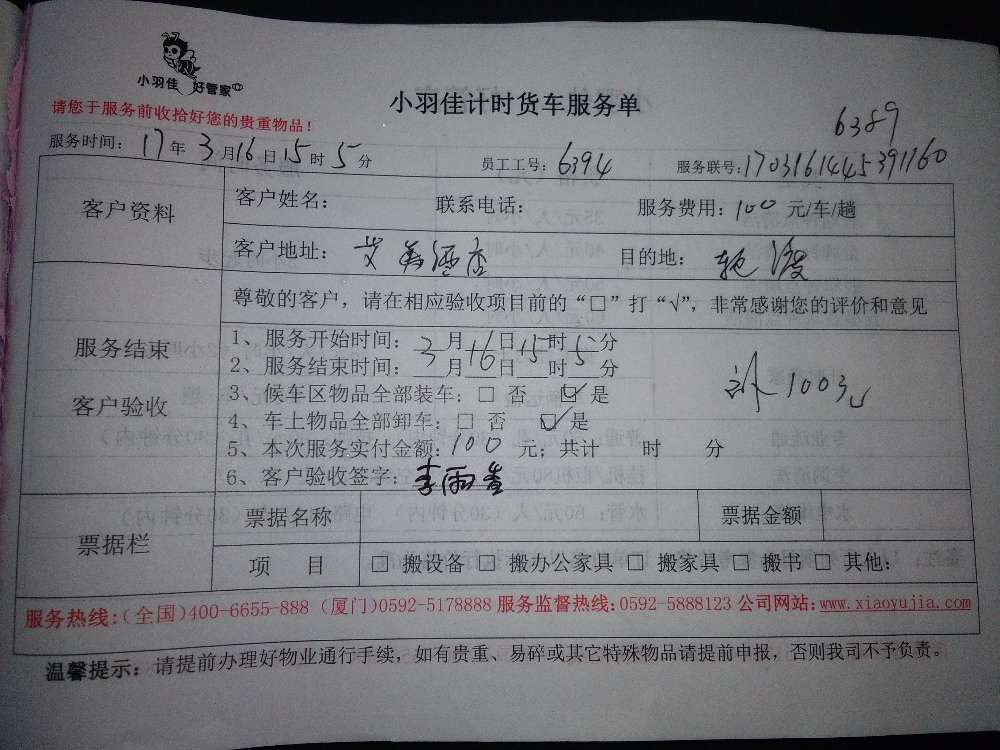 小羽佳 好管家
小羽佳计时货车服务单
请您于服务前收拾好您的贵重物品！
6389
服务时间：17年3月16日15时5分 员工工号：6394 服务联号：1703161445391160
客户资料
客户姓名： 联系电话： 服务费用：100 元/车/趟
客户地址：艾美酒店 目的地：
尊敬的客户，请在相应验收项目前的“□”打“√”，非常感谢您的评价和意见
服务结束
客户验收
1、服务开始时间：3月16日15时5分
2、服务结束时间： 月 日 时 分
3、候车区物品全部装车：□ 否 ☑ 是
4、车上物品全部卸车：□ 否 ☑ 是
5、本次服务实付金额：100 元；共计 时 分
6、客户验收签字：李雨
票据栏
票据名称 票据金额
项 目 □ 搬设备 □ 搬办公家具 □ 搬家具 □ 搬书 □ 其他：
服务热线：(全国)400-6655-888 (厦门)0592-5178888 服务监督热线：0592-5888123 公司网站：www.xiaoyujia.com
温馨提示：请提前办理好物业通行手续，如有贵重、易碎或其它特殊物品请提前申报，否则我司不予负责。